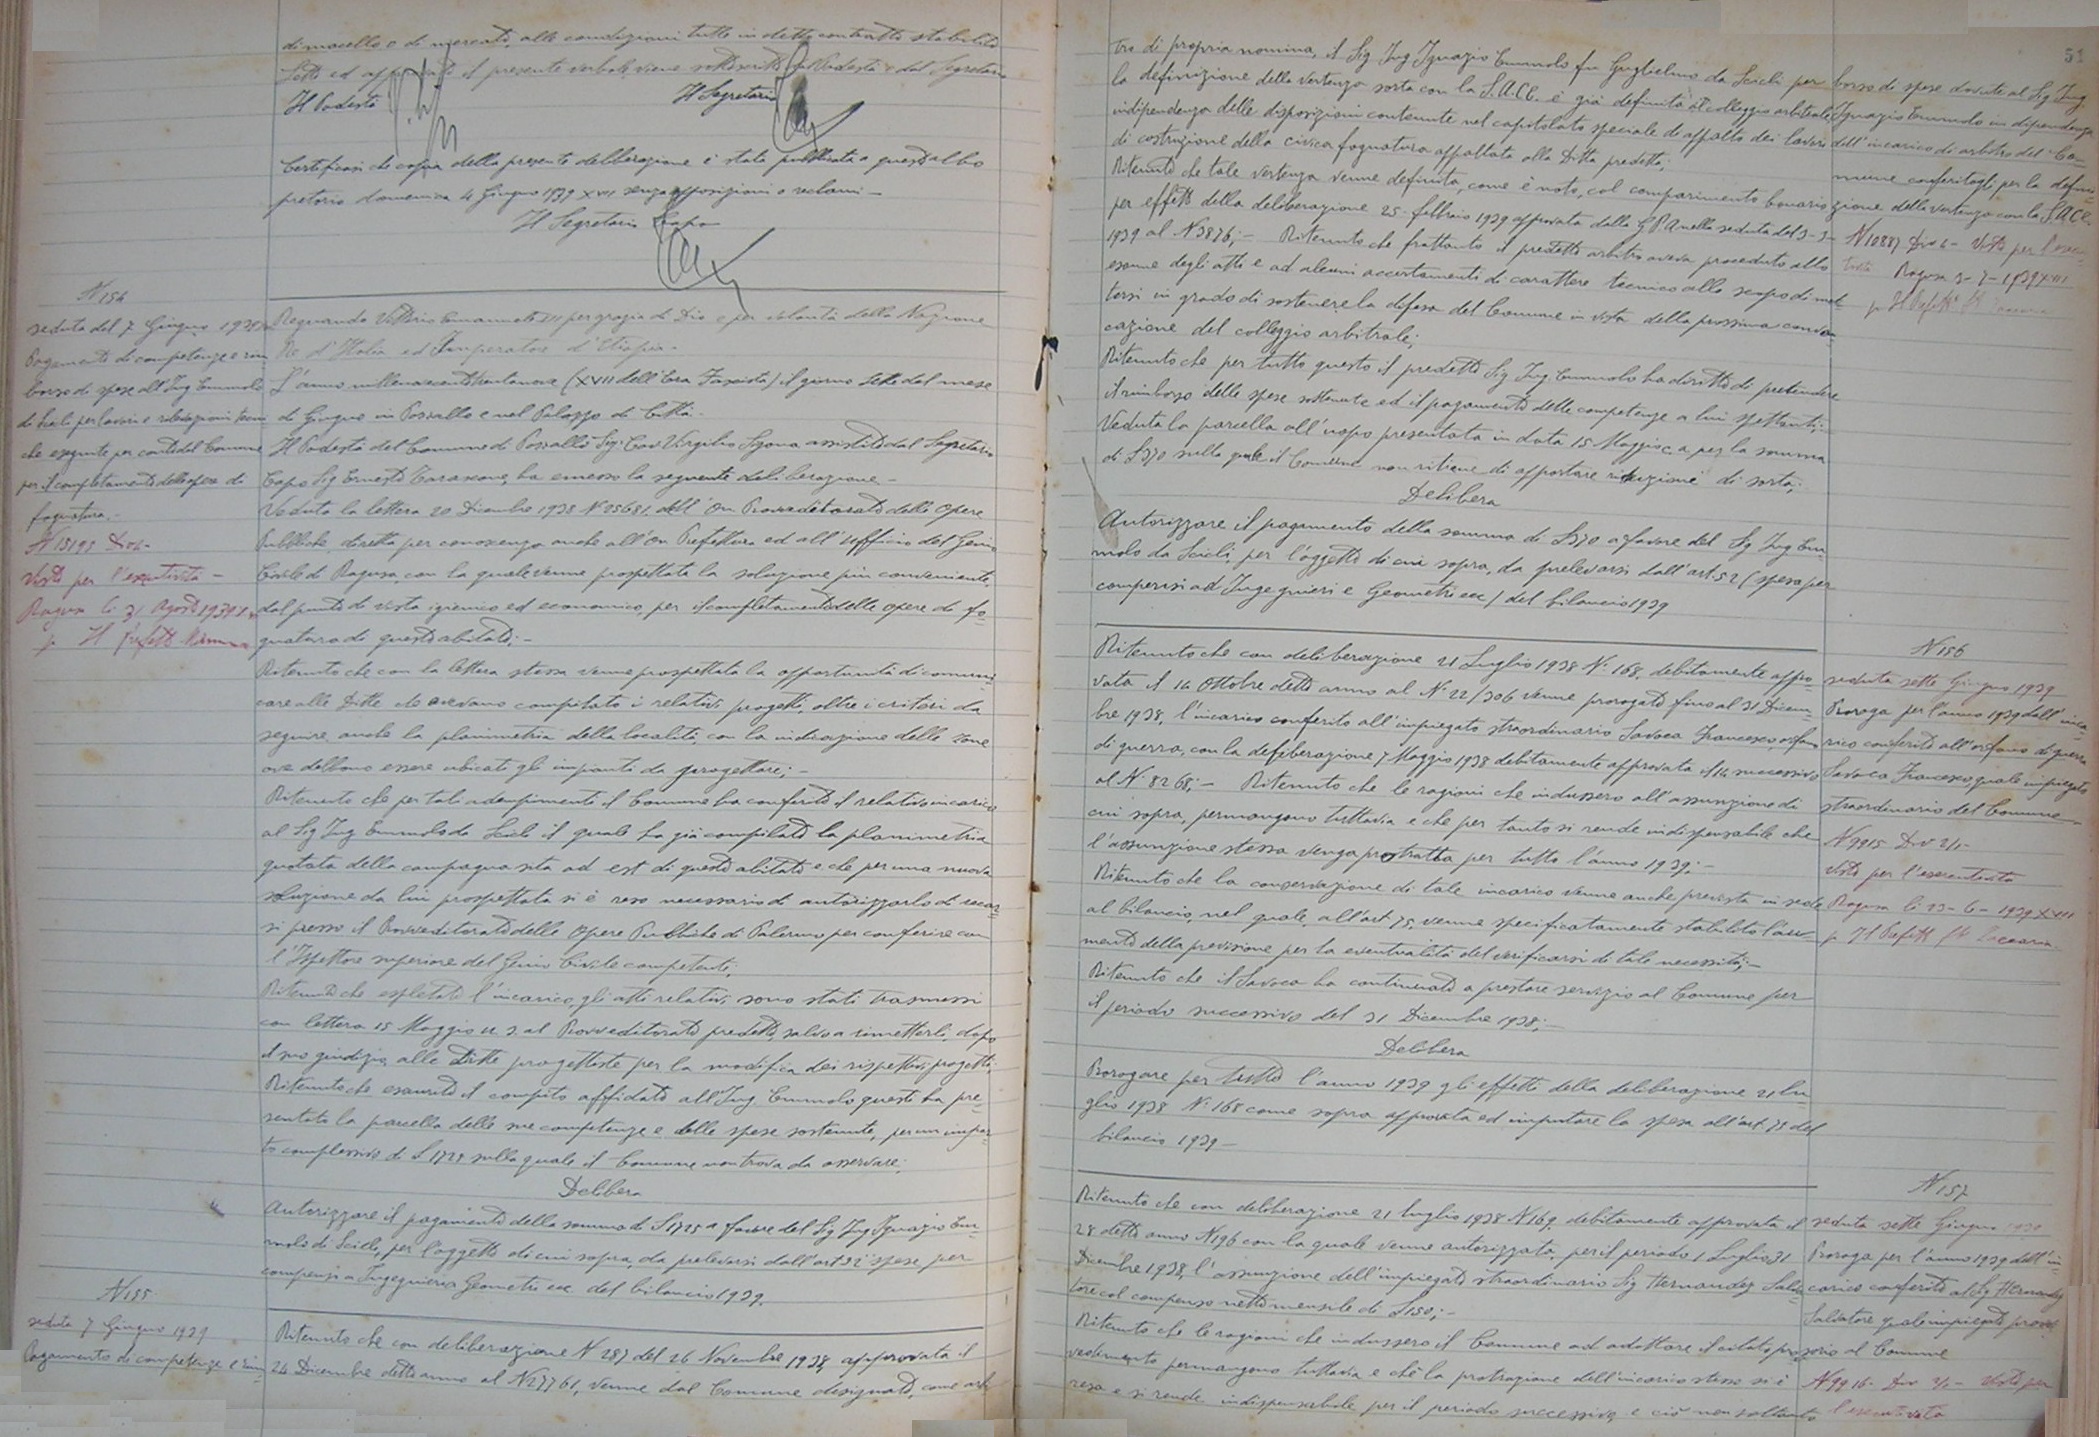 di macello o di mercato, alle condizioni tutte in detto contratto stabilite
Letto ed approvato il presente verbale viene sottoscritto dal Podestà e dal Segretario
Il Podestà
Il Segretario
Certificasi che copia della presente deliberazione è stata pubblicata a quest'albo
pretorio domenica 4 Giugno 1939 XVII senza opposizioni o reclami -
Il Segretario Capo
N 154
seduta del 7 Giugno 1939
Pagamento di competenze e rim
borso di spese all'Ing Emmolo
di Scicli per lavori e rilevazioni tecni
che eseguite per conto del Comune
per il completamento delle opere di
fognatura.-
N 15195 Div 4-
Visto per l'esecutività -
Ragusa li 31 Agosto 1939
p. Il Prefetto
Regnando Vittorio Emanuele III per grazia di Dio e per volontà della Nazione
Re d'Italia ed Imperatore d'Etiopia.-
L'anno millenovecentotrentanove (XVII dell'Era Fascista) il giorno sette del mese
di Giugno in Pozzallo e nel Palazzo di Città.-
Il Podestà del Comune di Pozzallo Sig. Cav Virgilio assistito dal Segretario
Capo Sig Ernesto Tarascone, ha emesso la seguente deliberazione -
Veduta la lettera 20 Dicembre 1938 N 25681 dell'On Provveditorato delle Opere
Pubbliche, diretta per conoscenza anche all'On Prefettura ed all'ufficio del Genio
Civile di Ragusa, con la quale venne prospettata la soluzione più conveniente,
dal punto di vista igienico ed economico, per il completamento delle opere di fo-
gnatura di quest'abitato;-
Ritenuto che con la lettera stessa venne prospettata la opportunità di comuni-
care alle Ditte che avevano compilato i relativi progetti, oltre i criteri da
seguire, anche la planimetria della località, con la indicazione delle zone
ove debbono essere ubicati gli impianti da progettare;-
Ritenuto che per tali adempimenti il Comune ha conferito il relativo incarico
al Sig Ing Emmolo da Scicli il quale ha già compilato la planimetria
quotata della campagna sita ad est di questo abitato e che per una nuova
soluzione da lui prospettata si è reso necessario di autorizzarlo di recar-
si presso il Provveditorato delle Opere Pubbliche di Palermo per conferire con
l'Ispettore superiore del Genio Civile competente;
Ritenuto che espletato l'incarico, gli atti relativi sono stati trasmessi
con lettera 15 Maggio u. s. al Provveditorato predetto, salvo a rimetterli, dopo
il suo giudizio, alle Ditte progettiste per la modifica dei rispettivi progetti;
Ritenuto che esaurito il compito affidato all'Ing. Emmolo questi ha pre-
sentato la parcella delle sue competenze e delle spese sostenute, per un impor-
to complessivo di L 1725 sulla quale il Comune non trova da osservare;
Delibera
Autorizzare il pagamento della somma di L 1725 a favore del Sig Ing Ignazio Em-
molo di Scicli, per l'oggetto di cui sopra, da prelevarsi dall'art 52 spese per
compensi a Ingegneri e Geometri ecc. del bilancio 1939.
N 155
seduta 7 Giugno 1939
Pagamento di competenze e rim-
Ritenuto che con deliberazione N 287 del 26 Novembre 1938, approvata il
24 Dicembre detto anno al N 27761, venne dal Comune designato, come arbi
51
tro di propria nomina, il Sig Ing Ignazio Emmolo fu Guglielmo da Scicli per
la definizione della vertenza sorta con la S.A.C.E. e già definita al collegio arbitrale
indipendenza delle disposizioni contenute nel capitolato speciale di appalto dei lavori
di costruzione della civica fognatura appaltata alla Ditta predetta;
Ritenuto che tale vertenza venne definita, come è noto, col componimento bonario
per effetto della deliberazione 25 febbraio 1939 approvata dalla G P A nella seduta del 3-3-
1939 al N 3876;- Ritenuto che frattanto il predetto arbitro aveva proceduto allo
esame degli atti e ad alcuni accertamenti di carattere tecnico allo scopo di met-
tersi in grado di sostenere la difesa del Comune in vista della prossima convo-
cazione del collegio arbitrale;
Ritenuto che per tutto questo il predetto Sig Ing. Emmolo ha diritto di pretendere
il rimborso delle spese sostenute ed il pagamento delle competenze a lui spettanti;-
Veduta la parcella all'uopo presentata in data 15 Maggio c.a. per la somma
di L 570 sulla quale il Comune non ritiene di apportare riduzione di sorta;
Delibera
Autorizzare il pagamento della somma di L 570 a favore del Sig Ing Em-
molo da Scicli, per l'oggetto di cui sopra, da prelevarsi dall'art 52 (spesa per
compensi ad Ingegnieri e Geometri ecc) del bilancio 1939
borso di spese dovute al Sig Ing
Ignazio Emmolo in dipendenza
dell'incarico di arbitro del Co-
mune conferitogli per la defini-
zione della vertenza con la S.A.C.E.
N 10887 Div 4- Visto per l'esecu-
tività Ragusa 3-7-1939 XVII
p Il Prefetto
Ritenuto che con deliberazione 21 Luglio 1938 N. 168, debitamente appro-
vata il 14 Ottobre detto anno al N. 22/306 venne prorogato fino al 31 Dicem-
bre 1938, l'incarico conferito all'impiegato straordinario Savoca Francesco, orfano
di guerra, con la deliberazione 7 Maggio 1938 debitamente approvata il 14 successivo
al N. 8268;- Ritenuto che le ragioni che indussero all'assunzione di
cui sopra, permangono tuttavia e che per tanto si rende indispensabile che
l'assunzione stessa venga protratta per tutto l'anno 1939;-
Ritenuto che la conservazione di tale incarico venne anche prevista in sede
al bilancio, nel quale, all'art 75, venne specificatamente stabilito l'au-
mento della previsione per la eventualità del verificarsi di tale necessità;-
Ritenuto che il Savoca ha continuato a prestare servizio al Comune per
il periodo successivo del 31 Dicembre 1938;-
Delibera
Prorogare per tutto l'anno 1939 gli effetti della deliberazione 21 lu-
glio 1938 N. 168 come sopra approvata ed imputare la spesa all'art. 75 del
bilancio 1939-
N 156
seduta sette Giugno 1939
Proroga per l'anno 1939 dell'inca-
rico conferito all'orfano di guerra
Savoca Francesco, quale impiegato
straordinario del Comune
N 9915 Div 2/1-
Visto per l'esecutività
Ragusa li 23-6-1939 XVII
p Il Prefetto
Ritenuto che con deliberazione 21 luglio 1938 N 169 debitamente approvata il
28 detto anno N 196 con la quale venne autorizzata, per il periodo 1 Luglio 31
Dicembre 1938, l'assunzione dell'impiegato straordinario Sig Hernandez Salva-
tore col compenso netto mensile di L 150;-
Ritenuto che le ragioni che indussero il Comune ad adottare il citato prov-
vedimento permangono tuttavia e che la protrazione dell'incarico stesso si è
resa e si rende indispensabile per il periodo successivo, e ciò non soltanto
N 157
seduta sette Giugno 1939
Proroga per l'anno 1939 dell'in-
carico conferito al Sig Hernandez
Salvatore quale impiegato provvi
sorio al Comune
N 9916- Div 2/1- Visto per
l'esecutività